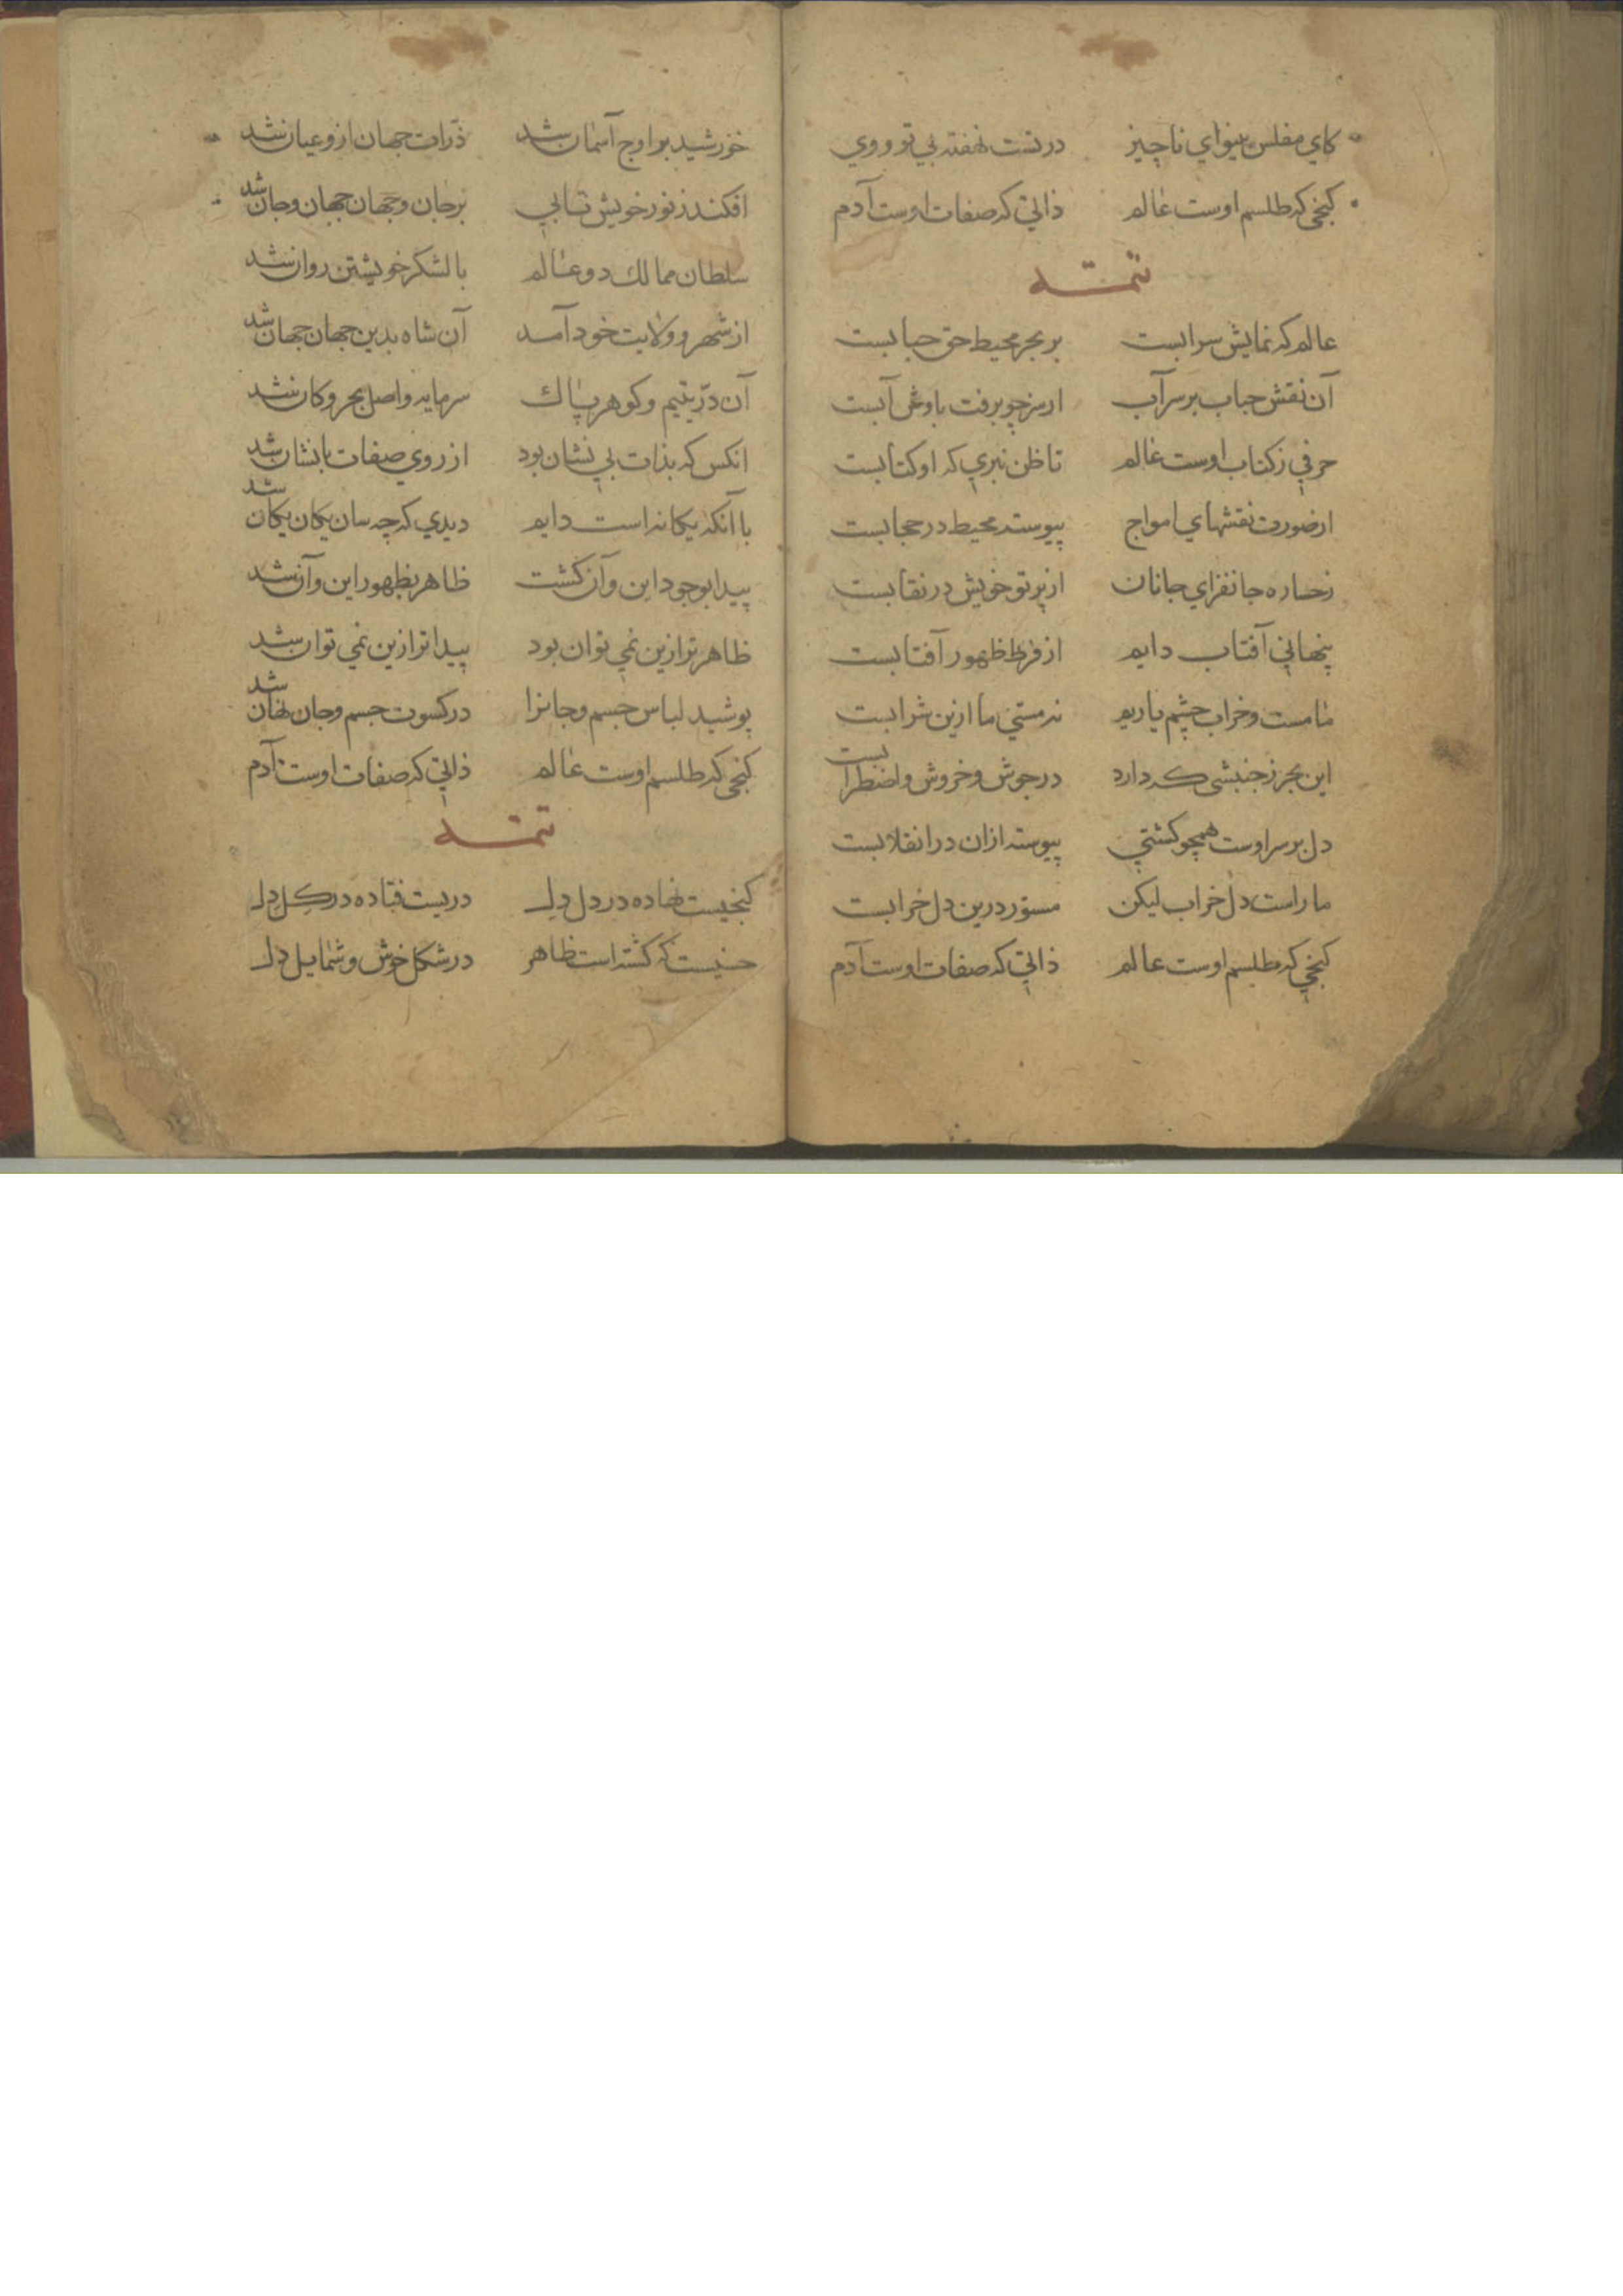 کای مفلس بینوای ناچیز در تست نهفته بی تو و وی
کنجی که طلسم اوست عالم ذاتی که صفات اوست آدم
تتمــه
عالم که نمایش سرابست بر بحر محیط حق حبابست
آن نقش حباب بر سر آب از سر چو برفت باد آبست
حرفی ز کتاب اوست عالم تا ظن نبری که او کتابست
از صورت نقشهای امواج پیوسته محیط در حجابست
رخساره جانفزای جانان از پرتو خویش در نقابست
پنهانی آفتاب دایم از فرط ظهور آفتابست
ما مست و خراب چشم یاریم نه مستی ما ازین شرابست
این بحر ز جنبشی که دارد در جوش و خروش و اضطرابست
دل بر سر اوست همچو کشتی پیوسته ازان در انقلابست
ما راست دل خراب لیکن مستور درین دل خرابست
کنجی که طلسم اوست عالم ذاتی که صفات اوست آدم
خورشید بر اوج آسمان شد ذرات جهان ازو عیان شد
افکند ز نور خویش تابی بر جان و جهان جهان و جان شد
سلطان ممالك دو عالم با لشکر خویشتن روان شد
از شهر و ولایت خود آمد آن شاه بدین جهان جهان شد
آن درّ یتیم و کوهر پاك سرمایه و اصل بحر و کان شد
انکس که بذات بی نشان بود از روی صفات با نشان شد
با آنکه یکانه است دایم دیدی که چه سان یکان یکان شد
پیدا بوجود این و آن کشت ظاهر بظهور این و آن شد
ظاهر تر ازین نمی توان بود پیدا تر ازین نمی توان شد
پوشید لباس جسم و جانرا در کسوت جسم و جان نهان شد
کنجی که طلسم اوست عالم ذاتی که صفات اوست آدم
تتمــه
کنجیست نهاده در دل دل دریست فتاده در کل دل
حسنیست که کشته است ظاهر در شکل خوش و شمایل دل